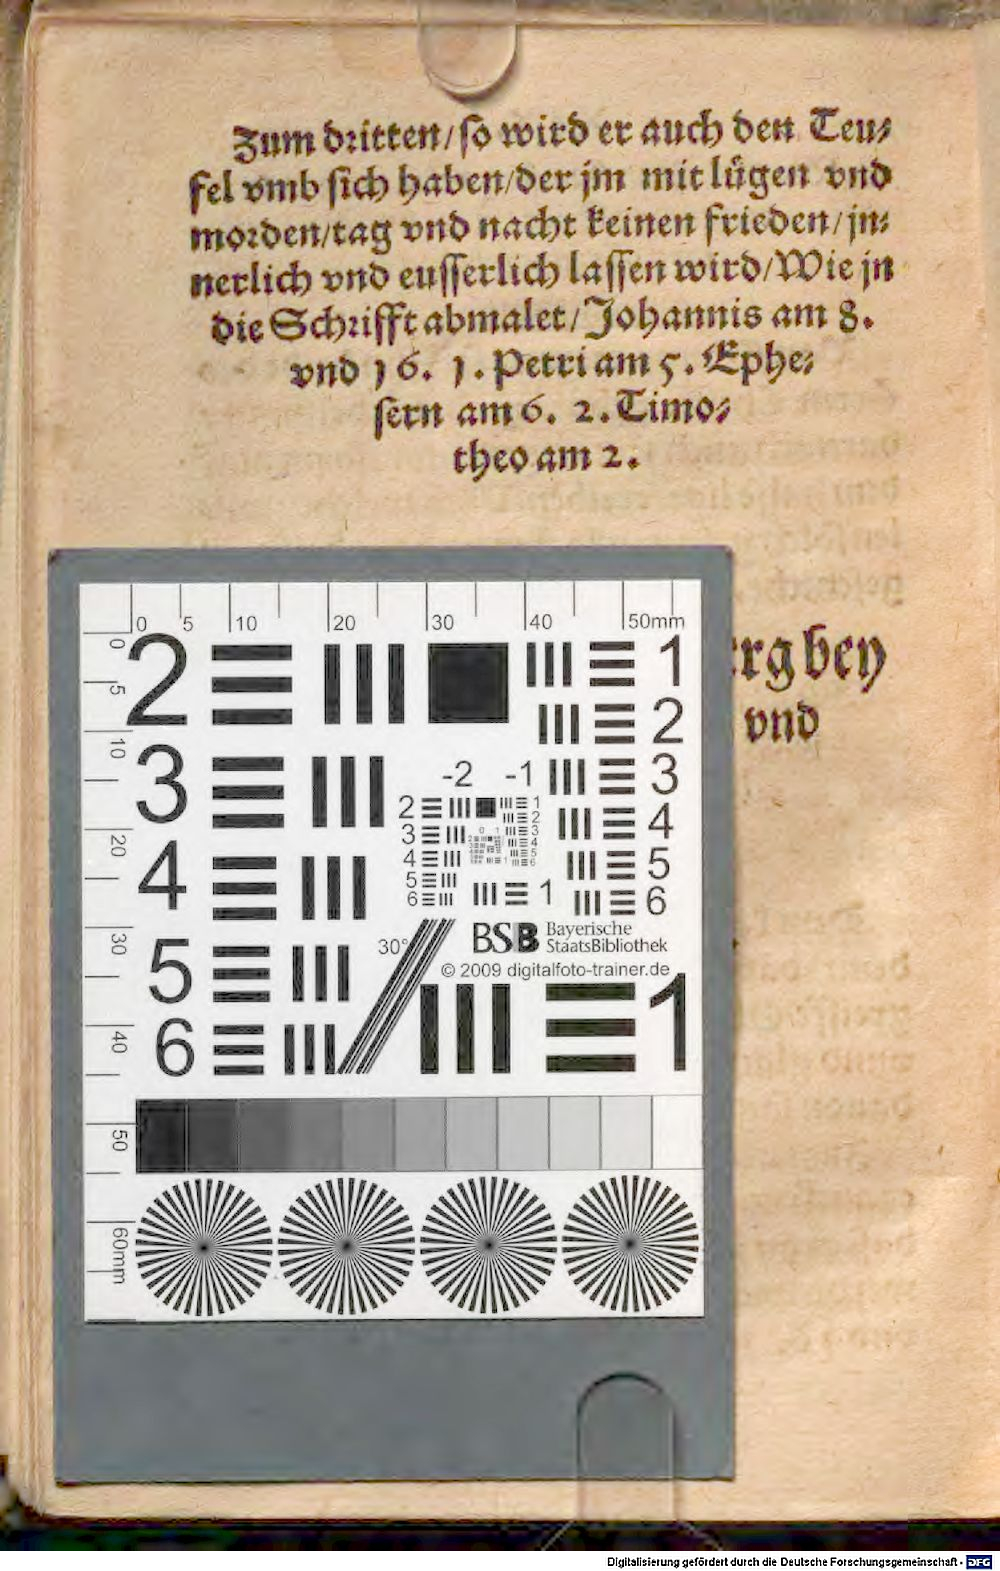 Zum dritten/so wird er auch den Teu⸗
fel vmb sich haben/der jm mit lügen vnd
morden/tag vnd nacht keinen frieden/jn⸗
nerlich vnd eusserlich lassen wird/Wie jn
die Schrifft abmalet/Johannis am 8.
vnd 16. 1. Petri am 5. Ephe⸗
sern am 6. 2. Timo⸗
theo am 2.
bey
vnd
0 5 10 20 30 40 50mm
0 5 10 20 30 40 50 60mm
2 1
2
3 3
-2 -1
2 1
2
3 3
4 4
5 5
6 6
4 4
5
1 6
BSB Bayerische
StaatsBibliothek
30°
© 2009 digitalfoto-trainer.de
5 1
6
Digitalisierung gefördert durch die Deutsche Forschungsgemeinschaft - DFG